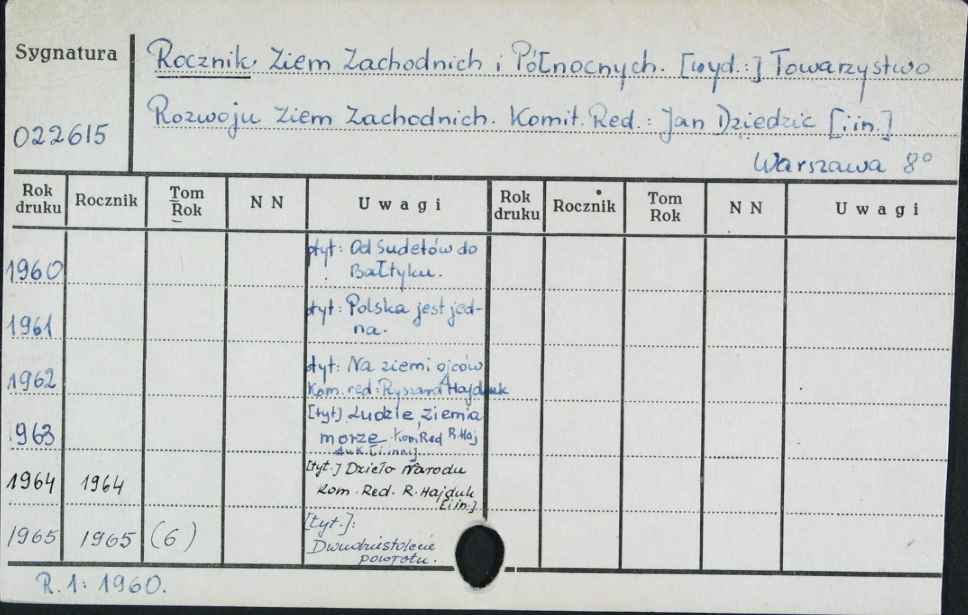 Sygnatura
022615
Rocznik Ziem Zachodnich i Północnych. [wyd.:] Towarzystwo
Rozwoju Ziem Zachodnich. Komit. Red.: Jan Dziedzic [i in.]
Warszawa 8°
Rok druku Rocznik Tom Rok N N Uwagi Rok druku Rocznik Tom Rok N N Uwagi
1960 tyt: Od Sudetów do
Bałtyku.
1961 tyt: Polska jest jed-
na.
1962 tyt: Na ziemi ojców
Kom. red: Ryszard Hajduk
1963 [tyt] Ludzie, ziemia
morze. Kom. Red R. Haj
duk. [i inni].
1964 1964 [tyt.] Dzieło Narodu
Kom. Red. R. Hajduk
[i in.]
1965 1965 (6) [tyt.]:
Dwudziestolecie
powrotu.
R. 1: 1960.